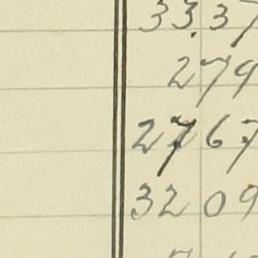 33.37
279
2767
3209